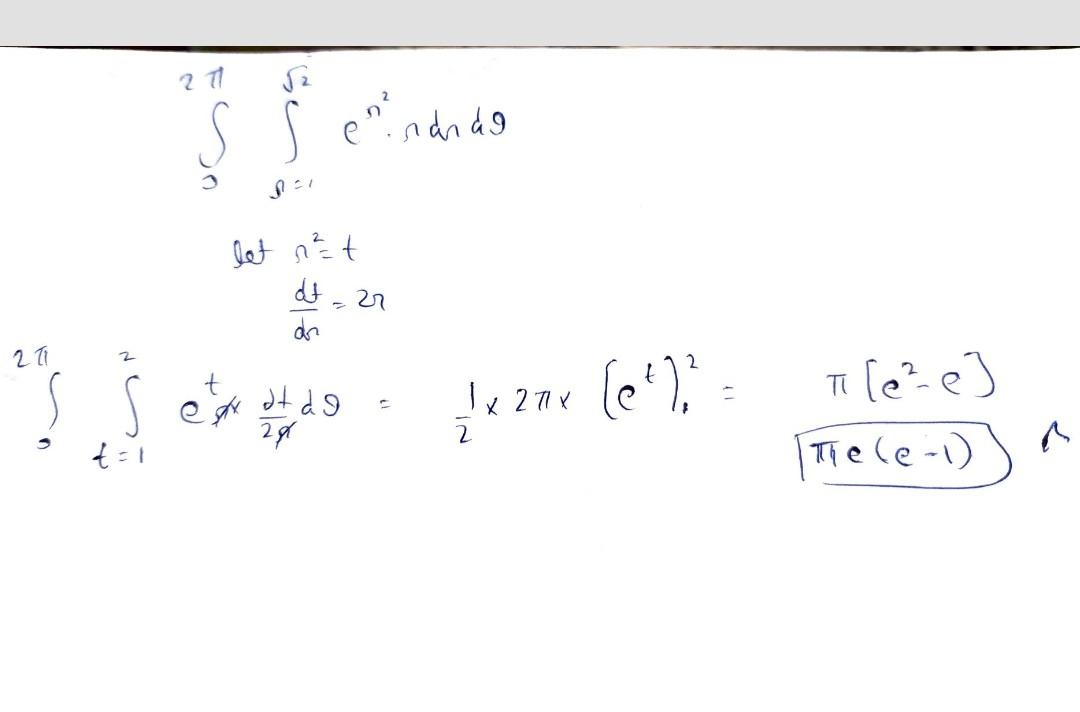 ∫₀^{2π} ∫_{r=1}^{√2} e^{r²} · r dr dθ
let r² = t
dt/dr = 2r
∫₀^{2π} ∫_{t=1}^{2} e^t r̸ × dt/2r̸ dθ = 1/2 × 2π × [e^t]₁² = π[e² - e]
πe(e-1)